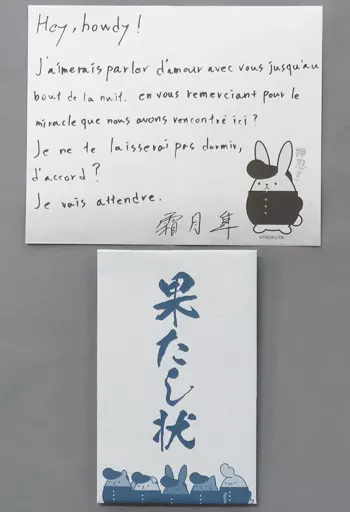 Hey, howdy!
J'aimerais parler d'amour avec vous jusqu'au
bout de la nuit. en vous remerciant pour le
miracle que nous avons rencontré ici?
Je ne te laisserai pas dormir,
d'accord?
Je vais attendre.
霜月 隼
©TSUKIUTA.
果たし状